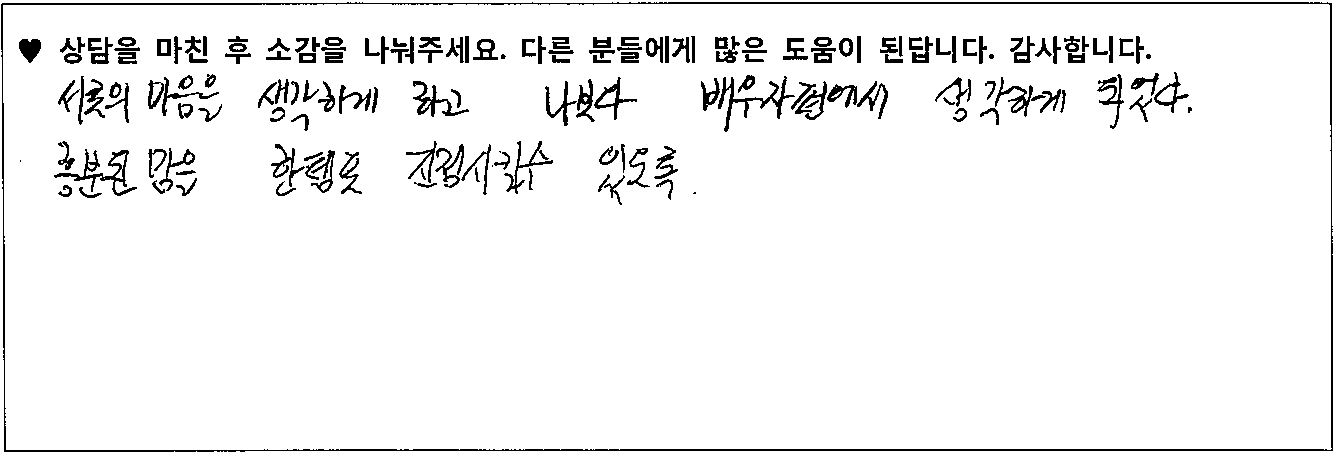 ♥ 상담을 마친 후 소감을 나눠주세요. 다른 분들에게 많은 도움이 된답니다. 감사합니다.
서로의 마음을 생각하게 하고 나보다 배우자편에서 생각하게 되었다.
흥분된 맘을 한템포 진정시킬수 있도록.